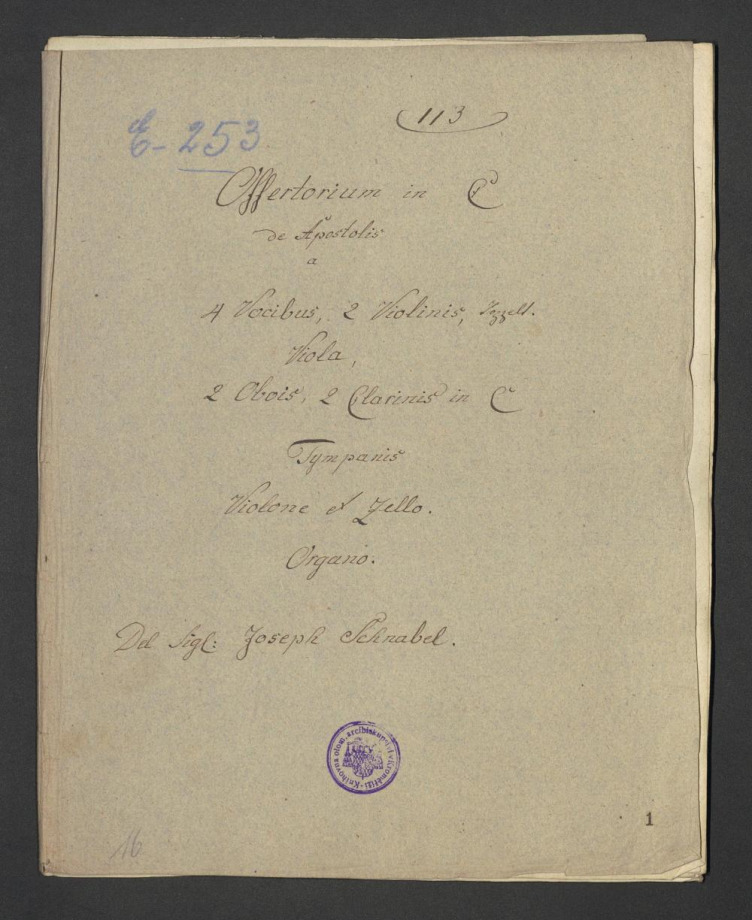 E-253
113
Offertorium in C
de Apostolis
a
4 Vocibus, 2 Violinis,
Viola,
2 Obois, 2 Clarinis in C
Tympanis
Violone et Zello.
Organo.
Del Sigl: Joseph Schnabel.
Knihovna olom. arcibiskupství v Kroměříži
1
16